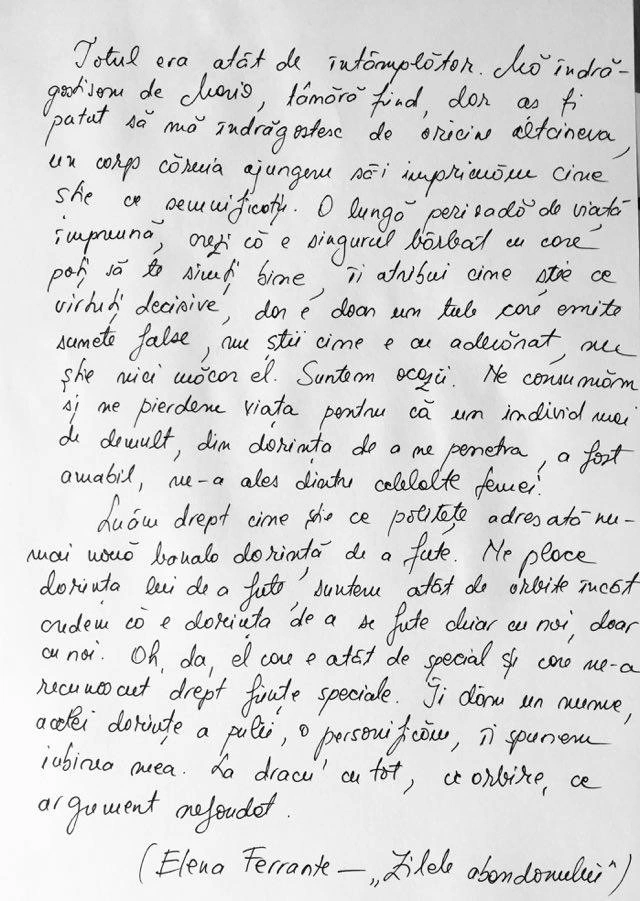 Totul era atât de întâmplător. Mă îndră-
gostisem de Mario, tânără fiind, dar aș fi
putut să mă îndrăgostesc de oricine altcineva,
un corp căruia ajungem să-i imprimăm cine
știe ce semnificații. O lungă perioadă de viață
împreună, crezi că e singurul bărbat cu care
poți să te simți bine, îi atribui cine știe ce
virtuți decisive, dar e doar un tub care emite
sunete false, nu știi cine e cu adevărat, nu
știe nici măcar el. Suntem ocazii. Ne consumăm
și ne pierdem viața pentru că un individ mai
de demult, din dorința de a ne penetra, a fost
amabil, ne-a ales dintre celelalte femei.
Luăm drept cine știe ce politețe adresată nu-
mai nouă banala dorință de a fute. Ne place
dorința lui de a fute, suntem atât de orbite încât
credem că e dorința de a se fute chiar cu noi, doar
cu noi. Oh, da, el care e atât de special și care ne-a
recunoscut drept ființe speciale. Îi dăm un nume,
acelei dorințe a pulii, o personificăm, îi spunem
iubirea mea. La dracu' cu tot, ce orbire, ce
argument nefondat.
(Elena Ferrante – „Zilele abandonului")